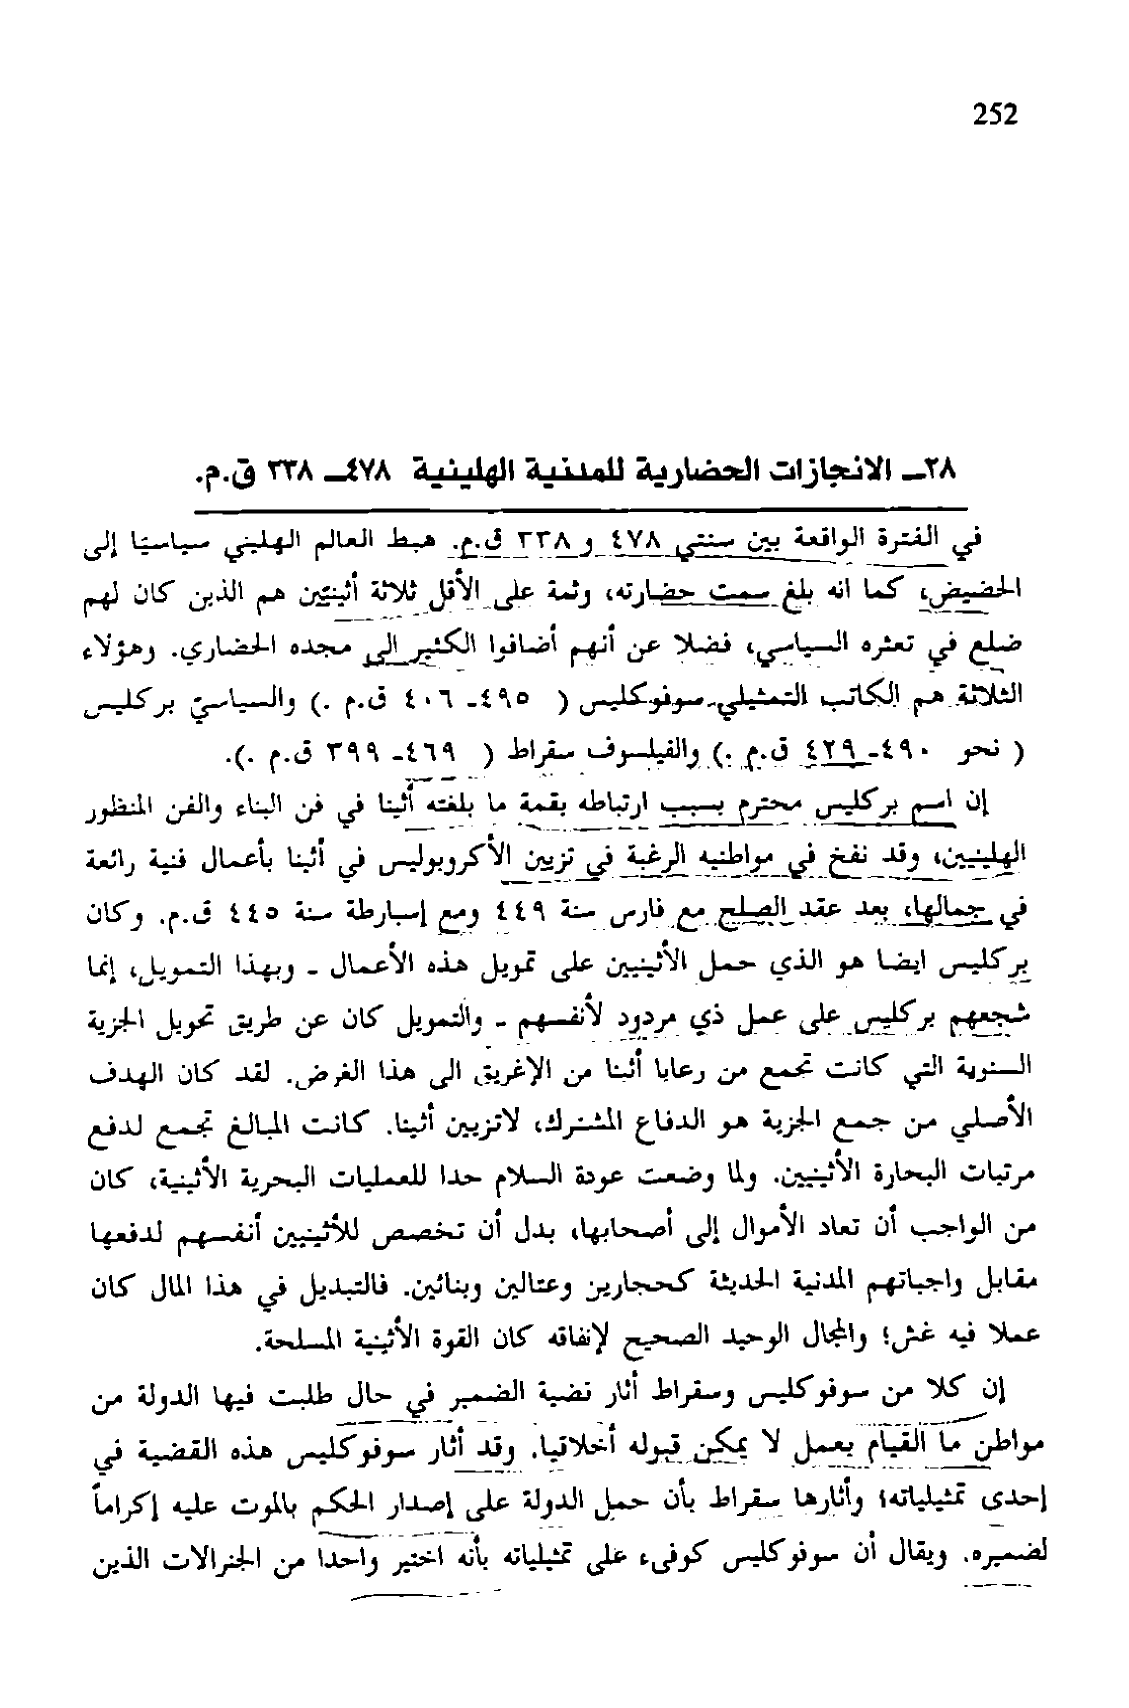 252
٢٨ــ الانجازات الحضارية للمدنية الهلينية ٤٧٨ــ ٣٣٨ ق.م.
في الفترة الواقعة بين سنتي ٤٧٨ و ٣٣٨ ق.م. هبط العالم الهليني سياسيًا إلى
الحضيض، كما انه بلغ سمت حضارته، وثمة على الأقل ثلاثة أثينيّين هم الذين كان لهم
ضلع في تعثره السياسي، فضلا عن أنهم أضافوا الكثير الى مجده الحضاري. وهؤلاء
الثلاثة هم الكاتب التمثيلي سوفوكليس ( ٤٩٥ـ ٤٠٦ ق.م .) والسياسيّ بركليس
( نحو ٤٩٠ـ ٤٢٩ ق.م .) والفيلسوف سقراط ( ٤٦٩ـ ٣٩٩ ق.م .).
إن اسم بركليس محترم بسبب ارتباطه بقمة ما بلغته أثينا في فن البناء والفن المنظور
الهلينيين، وقد نفخ في مواطنيه الرغبة في تزيين الأكروبوليس في أثينا بأعمال فنية رائعة
في جمالها، بعد عقد الصلح مع فارس سنة ٤٤٩ ومع إسبارطة سنة ٤٤٥ ق.م. وكان
بركليس ايضا هو الذي حمل الأثينيين على تمويل هذه الأعمال - وبهذا التمويل، إنما
شجعهم بركليس على عمل ذي مردود لأنفسهم - والتمويل كان عن طريق تحويل الجزية
السنوية التي كانت تجمع من رعايا أثينا من الإغريق الى هذا الغرض. لقد كان الهدف
الأصلي من جمع الجزية هو الدفاع المشترك، لاتزيين أثينا. كانت المبالغ تجمع لدفع
مرتبات البحارة الأثينيين. ولما وضعت عودة السلام حدا للعمليات البحرية الأثينية، كان
من الواجب أن تعاد الأموال إلى أصحابها، بدل أن تخصص للأثينيين أنفسهم لدفعها
مقابل واجباتهم المدنية الحديثة كحجارين وعتالين وبنائين. فالتبديل في هذا المال كان
عملا فيه غش؛ والمجال الوحيد الصحيح لإنفاقه كان القوة الأثينية المسلحة.
إن كلا من سوفوكليس وسقراط أثار قضية الضمير في حال طلبت فيها الدولة من
مواطن ما القيام بعمل لا يمكن قبوله أخلاقيا. وقد أثار سوفوكليس هذه القضية في
إحدى تمثيلياته؛ وأثارها سقراط بأن حمل الدولة على إصدار الحكم بالموت عليه إكراماً
لضميره. ويقال أن سوفوكليس كوفىء على تمثيلياته بأنه اختير واحدا من الجنرالات الذين